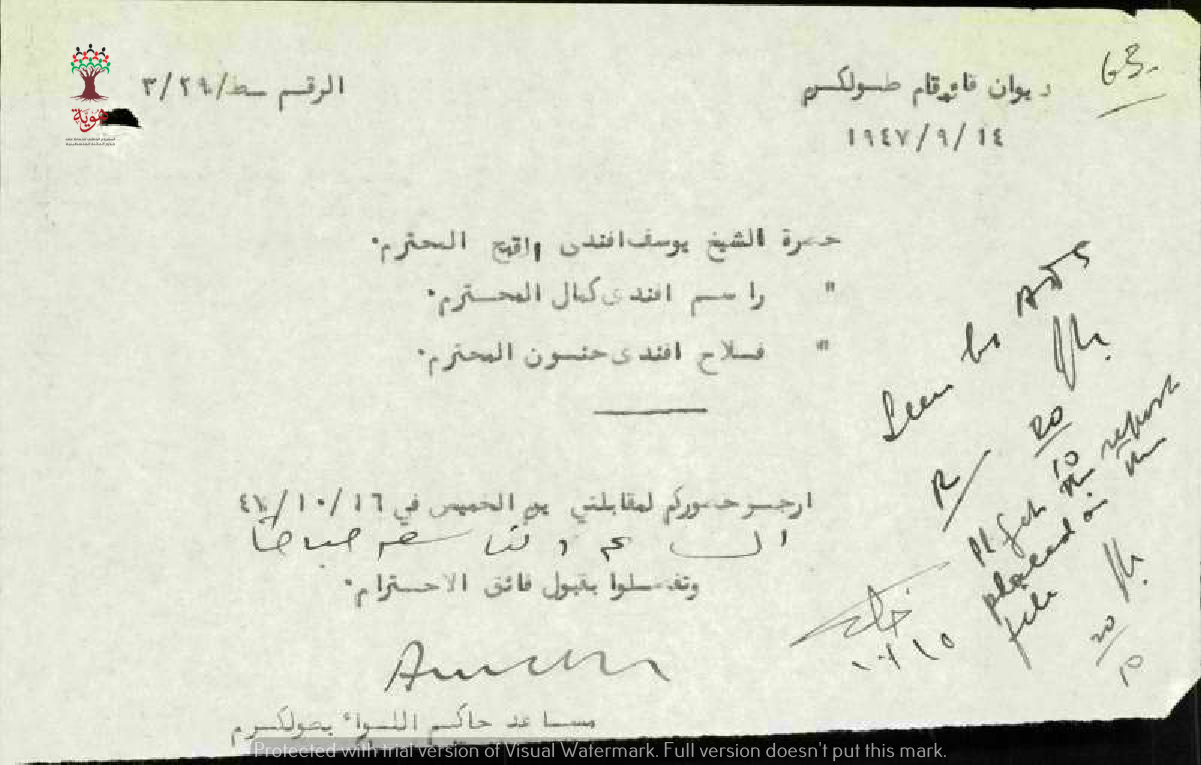 63.
ديوان قائمقام طولكرم
الرقم سط/٢٩/٣
١٩٤٧/٩/١٤
حضرة الشيخ يوسف افندي المحترم.
" راسم افندي كمال المحترم.
" فلاح افندي حنون المحترم.
ارجو حضوركم لمقابلتي يوم الخميس في ٤٧/١٠/١٦
الساعة التاسعة صباحا
وتفضلوا بقبول فائق الاحترام.
مساعد حاكم اللواء بطولكرم
Seen by ADS
20
10
Pl get the report
placed on the
file
20
10
هوية
Protected with trial version of Visual Watermark. Full version doesn't put this mark.